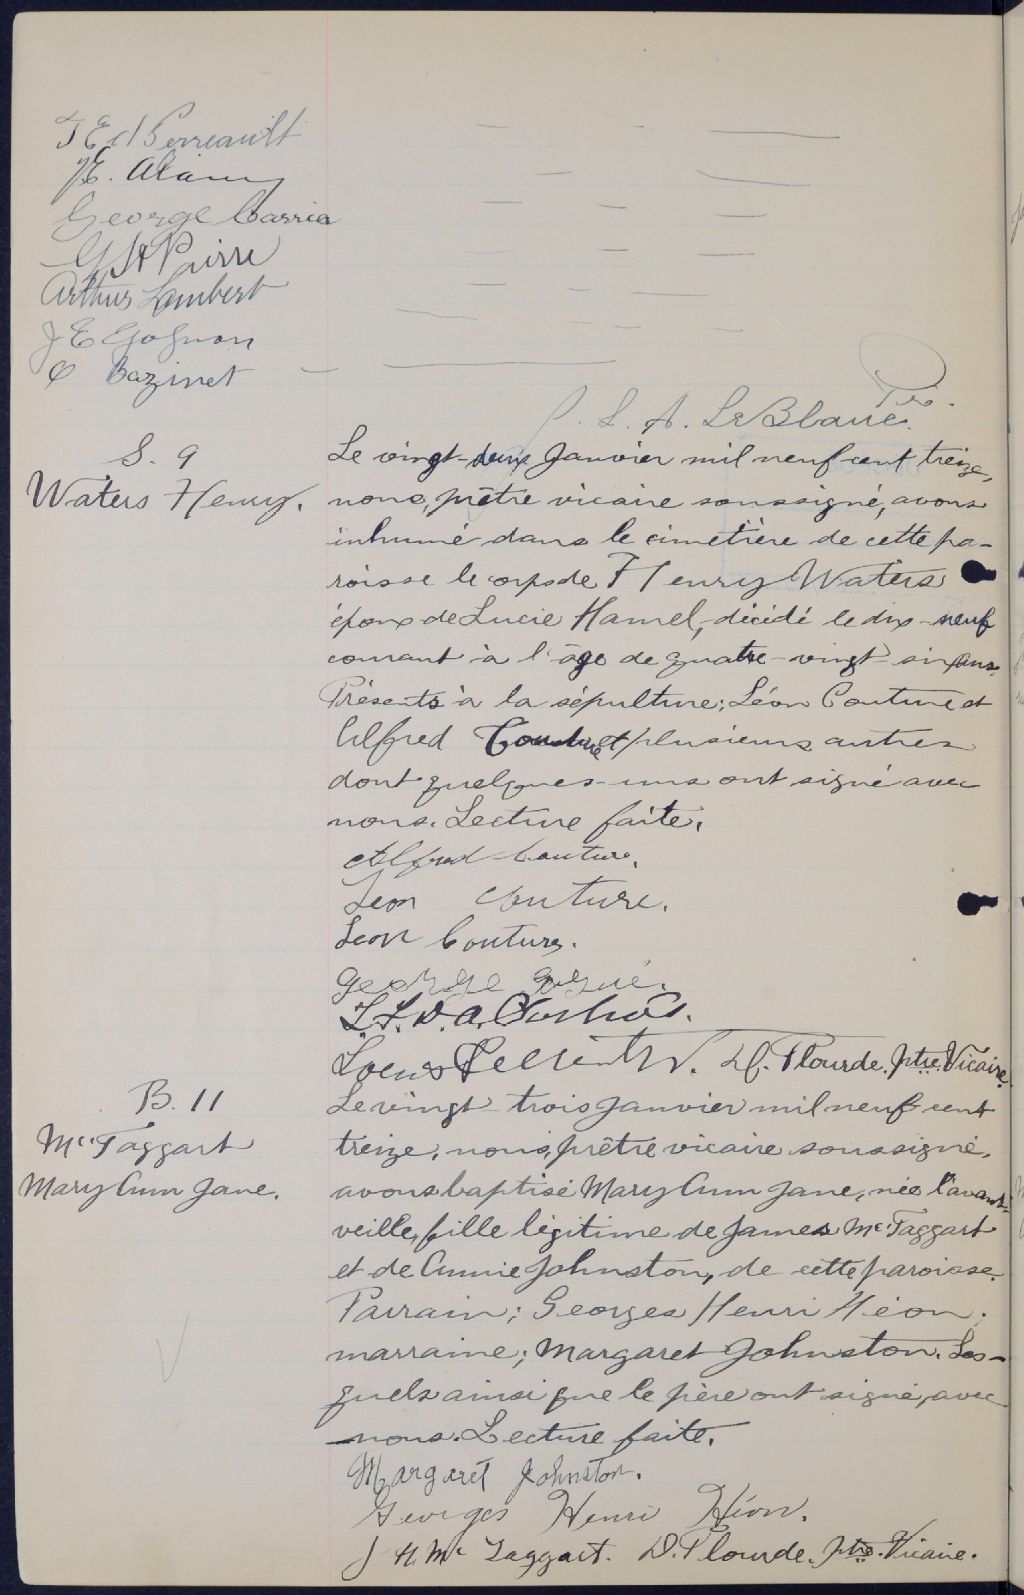 J E A Perreault
J E. Alain
George Carrier
G St Pierre
Arthur Lambert
J E Gagnon
Bazinet
J. L. A. LeBlanc Ptre.
S. 9
Waters Henry.
Le vingt-deux Janvier mil neuf cent treize,
nous, prêtre vicaire soussigné, avons
inhumé dans le cimetière de cette pa-
roisse le corps de Henry Waters
époux de Lucie Hamel, décédé le dix-neuf
courant à l'âge de quatre-vingt-six ans.
Présents à la sépulture; Léon Couture et
Alfred Couture et plusieurs autres
dont quelques-uns ont signé avec
nous. Lecture faite.
Alfred Couture.
Leon Couture.
Leon Couture.
George
Louis D. Plourde. Ptre. Vicaire
B. 11
McTaggart
Mary Ann Jane.
Le vingt trois Janvier mil neuf cent
treize, nous, prêtre vicaire soussigné,
avons baptisé Mary Ann Jane, née l'avant-
veille, fille légitime de James McTaggart
et de Annie Johnston, de cette paroisse.
Parrain; Georges Henri Héon;
marraine; Margaret Johnston. Les-
quels ainsi que le père ont signé, avec
nous. Lecture faite.
Margaret Johnston.
Georges Henri Héon.
J H. Mc Taggart. D. Plourde. Ptre. Vicaire.